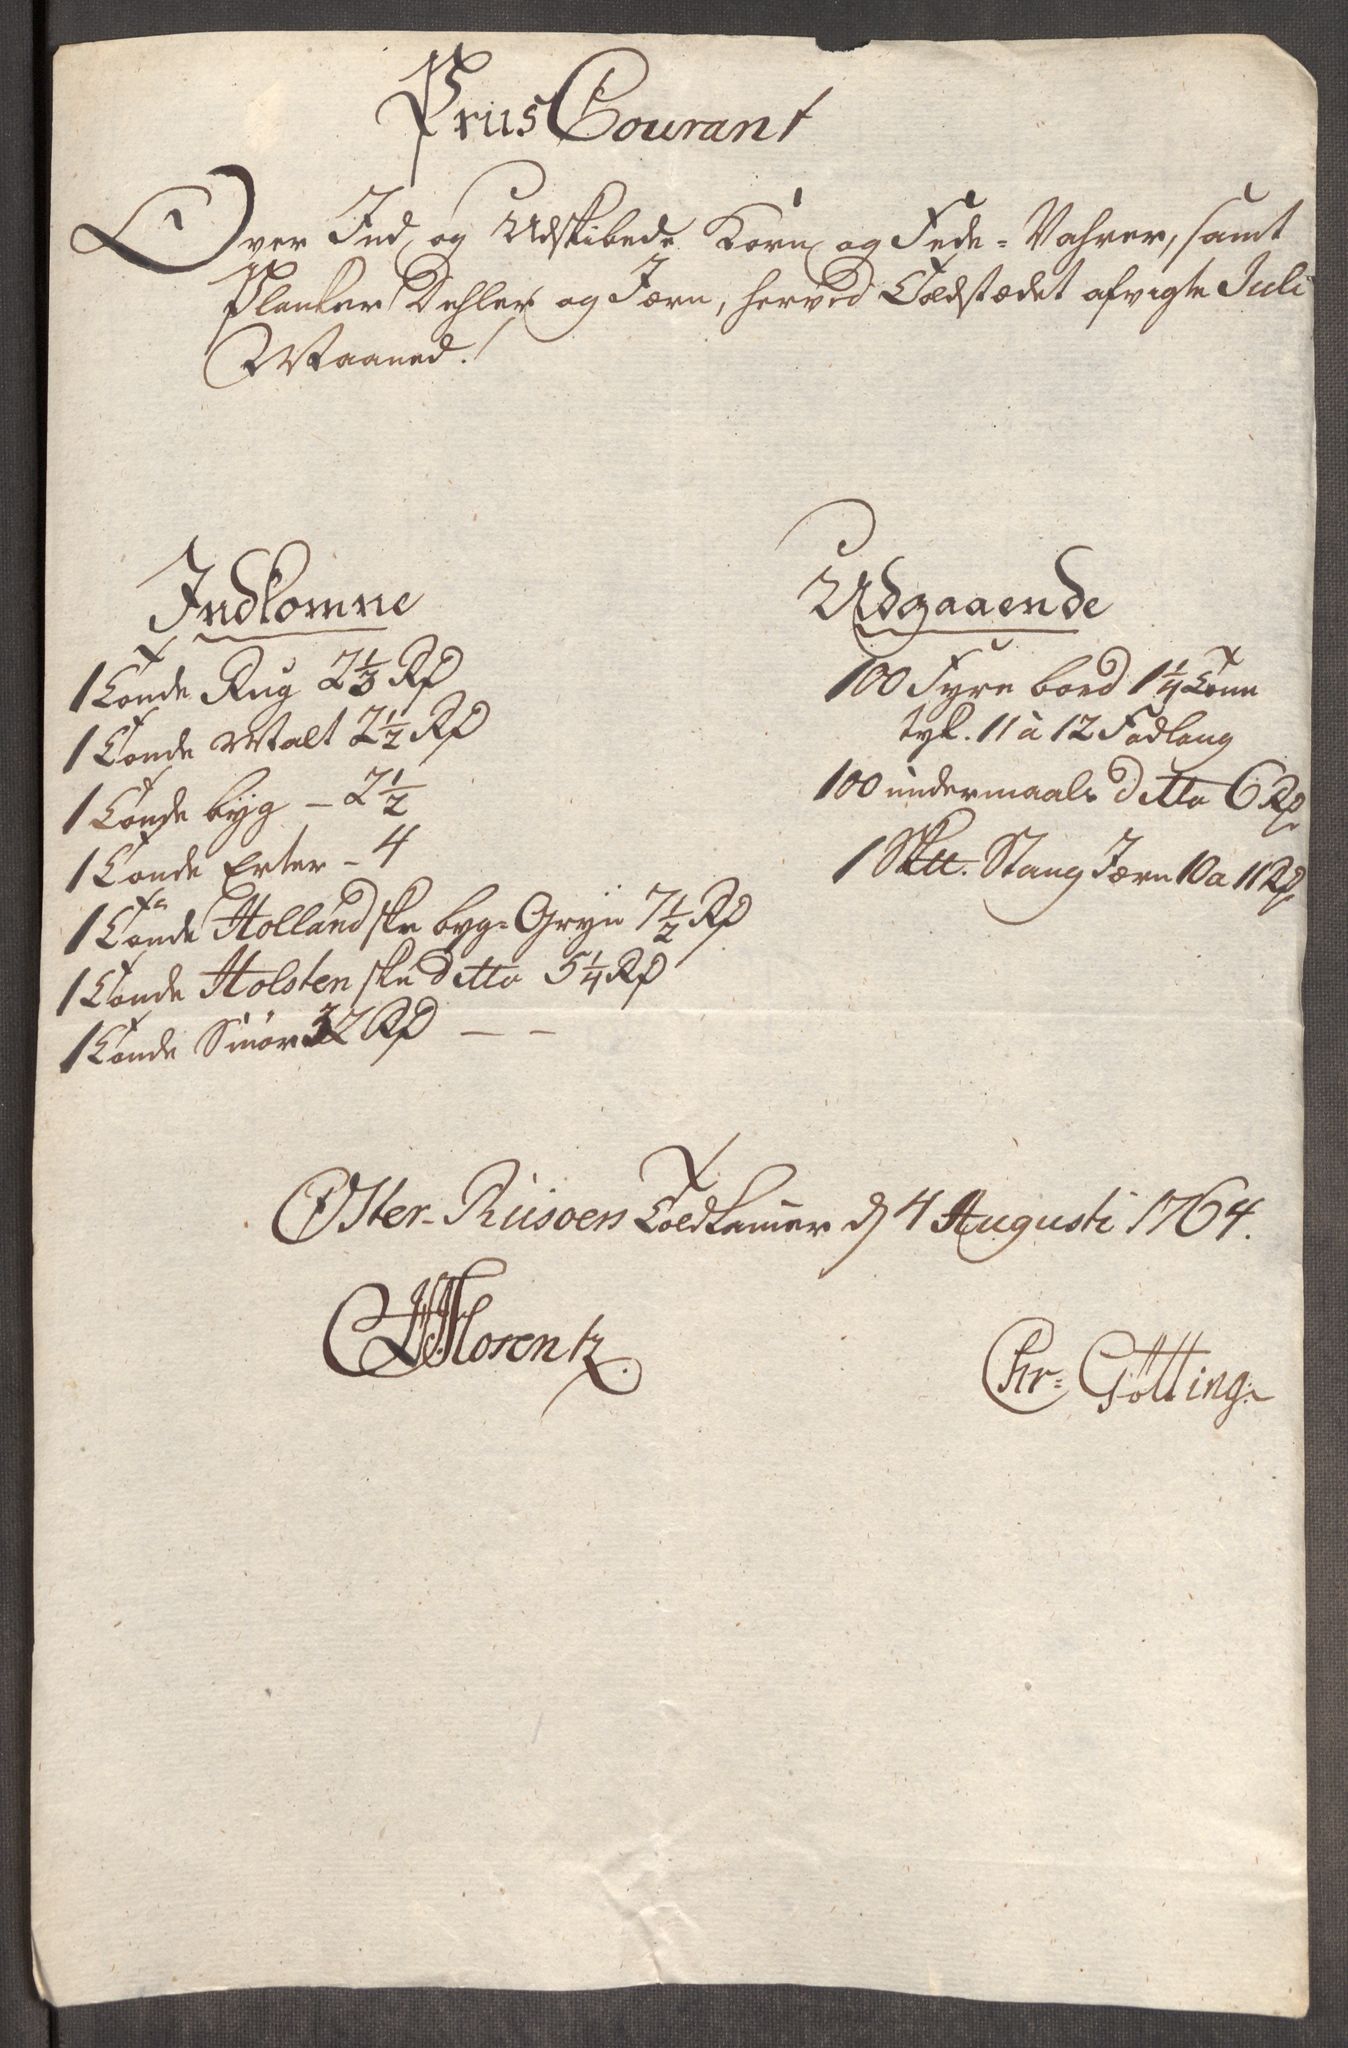 Priis Courant
Over Ind og Udskibede Korn og Fede-Vahrer, samt
Planker Dehler og Jærn, herved Toldstædet afvigte Juli
Maaned.
Indkomne
1 Tønde Rug 2 1/3 Rd
1 Tønde Malt 2 1/2 Rd
1 Tønde byg – 2 1/2
1 Tønde Erter – 4
1 Tønde Hollandske byg-Gryn 7 1/2 Rd
1 Tønde Holstenske ditto 5 1/4 Rd
1 Tønde Smør 32 Rd – –
Udgaaende
100 Fyre bord 1 1/4 Tom
tyk. 11 à 12 Fod lang
100 undermaals ditto 6 Rd
1 Sktt. Stang Jærn 10 a 11 Rd
Øster-Riisøers Toldkamer d 4 Augusti 1764.
Florentz.
Chr: Götting